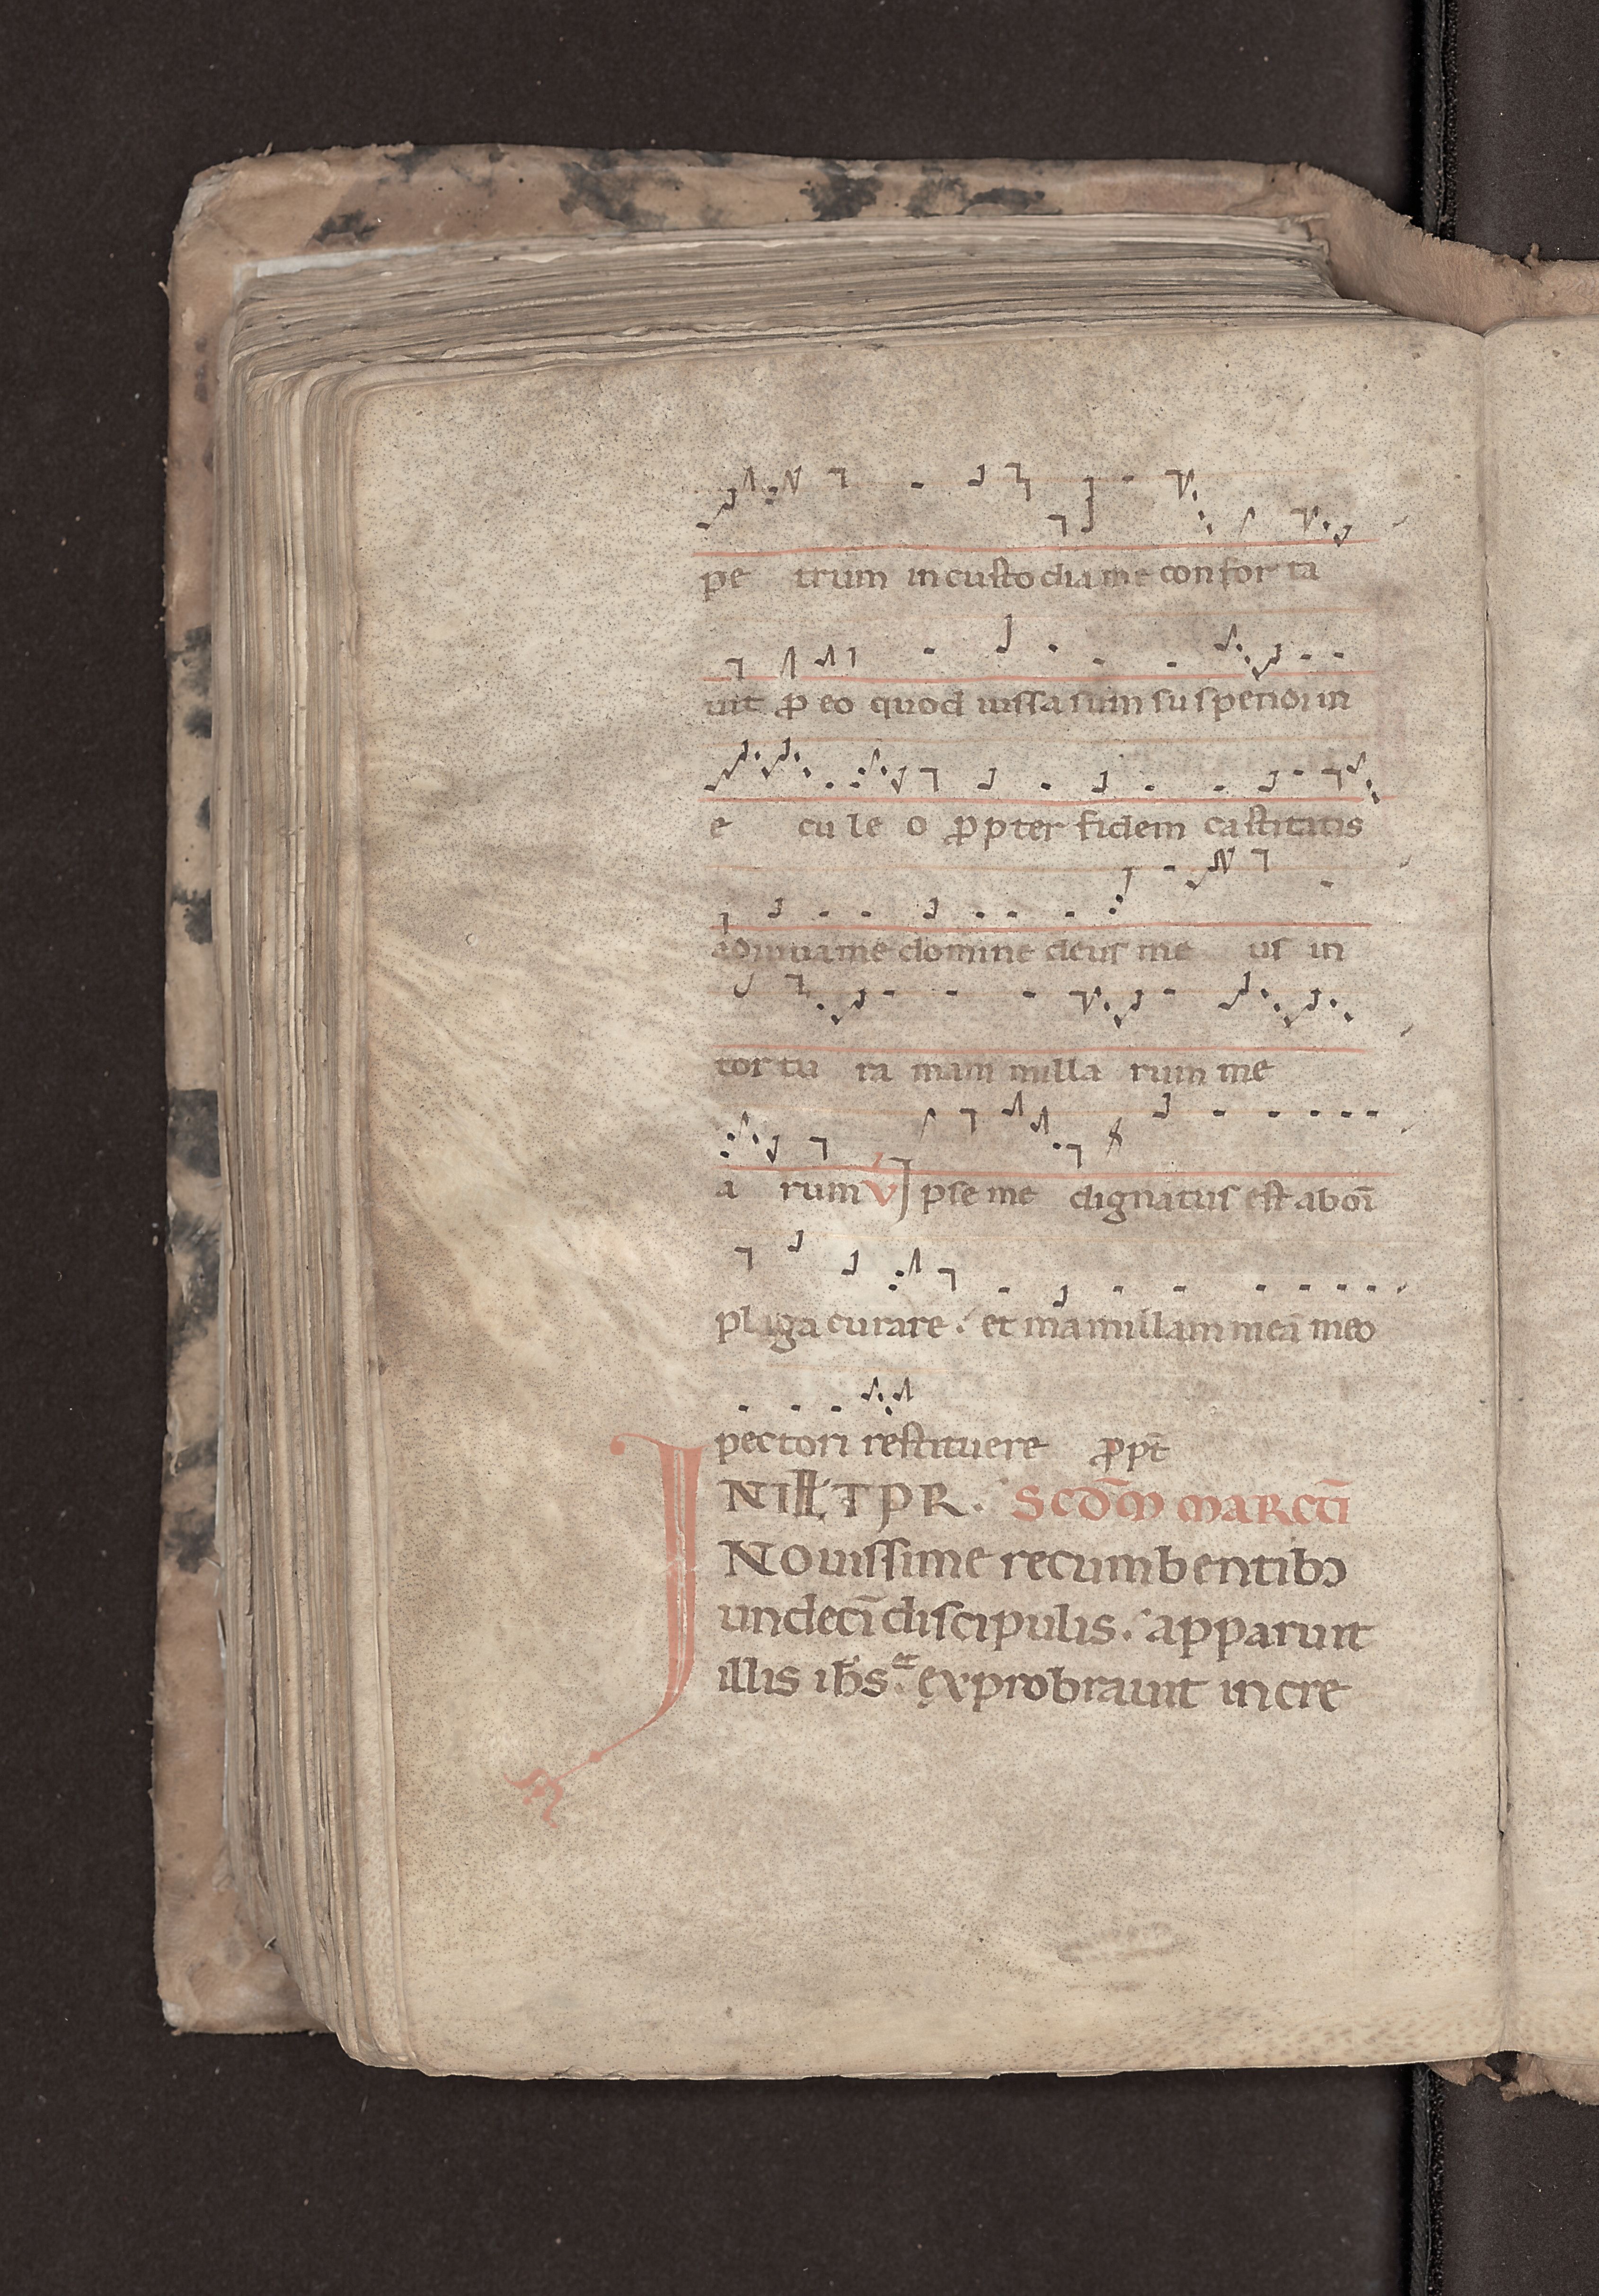 pe trum in custodia me confor ta
uit ꝓ eo quod iussa sum suspendi in
e cu le o ꝓpter fidem castitatis
adiuua me domine deus me us in
tortu ra mam milla rum me
a rum V Ipse me dignatus est ab oī
plaga curare. et mamillam meā meo
pectori restituere ꝓpt̄
IN ILL T PR. SCDM MARCU̅
Nouissime recumbentibꝫ
undecī discipulis. apparuit
illis ih̄s. et exprobrauit incre